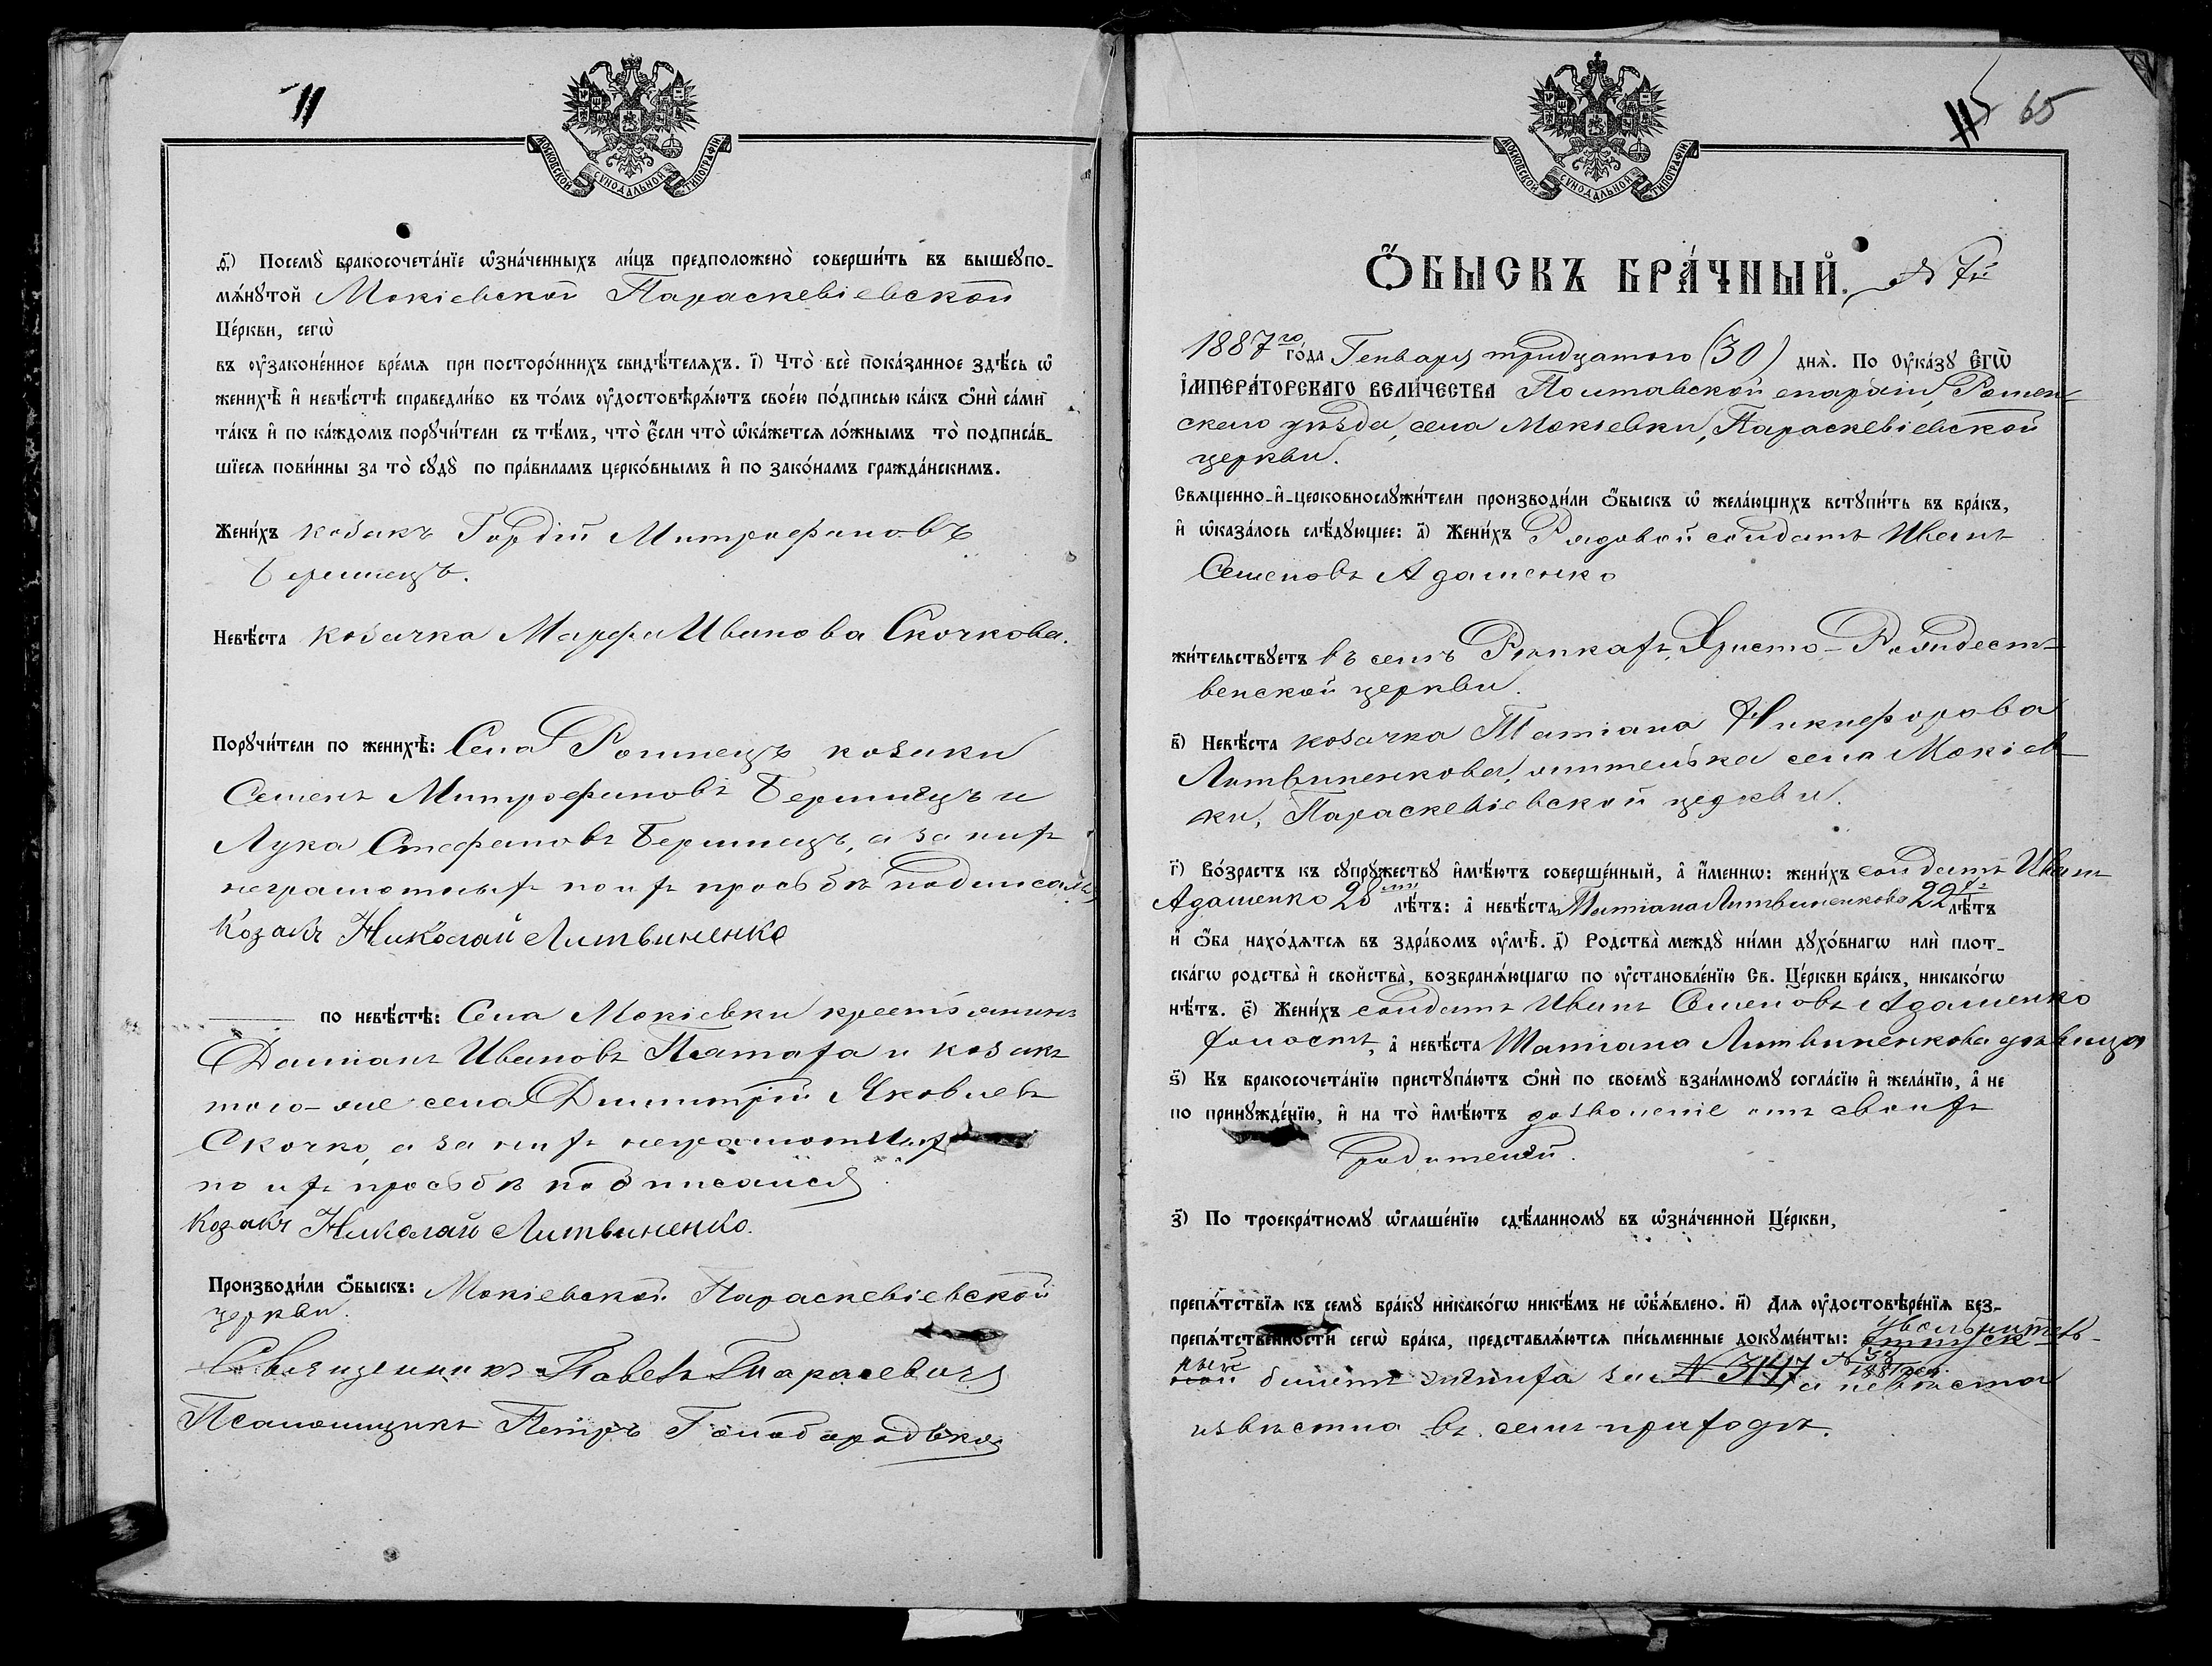 11
МОСКОВСКОЙ СѴНОДАЛЬНОЙ ТИПОГРАФІИ
д҃) Посемꙋ̀ бракосочета́нїе ѡ҆зна́ченныхъ ли́цъ предположено̀ соверши́ть въ вышеꙋпо-
мѧ́нꙋтой Мокіевской Параскевіевской
Це́ркви, сегѡ̀
въ ᲂу҆законе́нное вре́мѧ при посторо́ннихъ свидѣ́телѧхъ. і҃) Что̀ всѐ пока́занное здѣ́сь ѡ҆
женихѣ̀ и҆ невѣ́стѣ справедли́во въ то́мъ ᲂу҆достовѣрѧ́ютъ свое́ю по́дписью ка́къ ѻ҆нѝ са́ми
та́къ и҆ по ка́ждомъ порꙋчи́тели съ тѣ́мъ, что̀ є҆́сли что̀ ѡ҆ка́жетсѧ ло́жнымъ то̀ подписа́в-
шїесѧ пови́нны за то̀ сꙋдꙋ̀ по пра́виламъ церко́внымъ и҆ по зако́намъ гражда́нскимъ.
Жени́хъ козакъ Гордій Митрофановъ
Бермнецъ.
Невѣ́ста козачка Марфа Иванова Скочкова.
Порꙋчи́тели по женихѣ̀: Села Ромнецъ козаки
Семенъ Митрофановъ Бермнецъ и
Лука Стефановъ Бермнецъ, а за нихъ
неграмотныхъ по ихъ просьбѣ подписался
Козакъ Николай Литвиненко
по невѣ́стѣ: Села Мокіевки крестьянинъ
Даміанъ Ивановъ Платаха и козакъ
того-же села Димитрій Яковлевъ
Скочко, а за нихъ неграмотныхъ
по ихъ просьбѣ подписался
Козакъ Николай Литвиненко.
Производи́ли ѻ҆́быскъ: Мокіевской Параскевіевской
церкви.
Священникъ Павелъ Тарасевичъ
Псаломщикъ Петръ Голобородько
11 5 65
МОСКОВСКОЙ СѴНОДАЛЬНОЙ ТИПОГРАФІИ
Ѻ҆́БЫСКЪ БРА́ЧНЫЙ. № 7й
1887го го́да Генваря тридцатого (30) днѧ̀. По Оу҆ка́зꙋ Є҆ГѠ̀
І҆МПЕРА́ТОРСКАГО ВЕЛИ́ЧЕСТВА Полтавской епархіи, Ромен-
ского уѣзда, села Мокіевки, Параскевіевской
церкви.
Свѧщенно-и҆-церковнослꙋжи́тели производи́ли ѻ҆́быскъ ѡ҆ жела́ющихъ встꙋпи́ть въ бра́къ,
и҆ ѡ҆каза́лось слѣ́дꙋющее: а҃) Жени́хъ Рядовой солдатъ Иванъ
Семеновъ Адаменко
жи́тельствꙋетъ въ селѣ Рѣпкахъ, Христо-Рождест-
венской церкви.
в҃) Невѣ́ста козачка Татіана Никифорова
Литвиненкова, жителька села Мокіев-
ки, Параскевіевской церкви.
г҃) Во́зрастъ къ сꙋпрꙋ́жествꙋ и҆мѣ́ютъ соверше́нный, а҆ и҆́меннѡ: жени́хъ солдатъ Иванъ
Адаменко 28ми лѣ́тъ: а҆ невѣ́ста Татіана Литвиненкова 22хъ лѣ́тъ
и҆ ѻ҆́ба нахо́дѧтсѧ въ здра́вомъ ᲂу҆мѣ̀. д҃) Родства̀ междꙋ̀ ни́ми дꙋхо́внагѡ илѝ плот-
ска́гѡ родства̀ и҆ свойства̀, возбранѧ́ющагѡ по ᲂу҆становле́нїю Св. Це́ркви бра́къ, никако́гѡ
нѣ́тъ. є҃) Жени́хъ солдатъ Иванъ Семеновъ Адаменко
холостъ, а҆ невѣ́ста Татіана Литвиненкова дѣвица
ѕ҃) Къ бракосочета́нїю пристꙋпа́ютъ ѻ҆нѝ по своемꙋ̀ взаи́мномꙋ согла́сїю и҆ жела́нїю, а҆ не
по принꙋжде́нїю, и҆ на то̀ и҆мѣ́ютъ дозволеніе отъ своихъ
родителей.
з҃) По троекра́тномꙋ ѡ҆глаше́нїю сдѣ́ланномꙋ въ ѡ҆зна́ченной Це́ркви,
препѧ́тствїѧ къ семꙋ̀ бра́кꙋ никако́гѡ никѣ́мъ не ѡ҆б̾ѧ́влено. и҃) Длѧ ᲂу҆достовѣре́нїѧ без-
препѧ́тственности сегѡ̀ бра́ка, представлѧ́ютсѧ пи́сьменные докꙋме́нты: увольнитель- отпуск-
ный ной билетъ жениха за № 3147 № 38 1887 года. а невѣста
извѣстна въ семъ приходѣ.